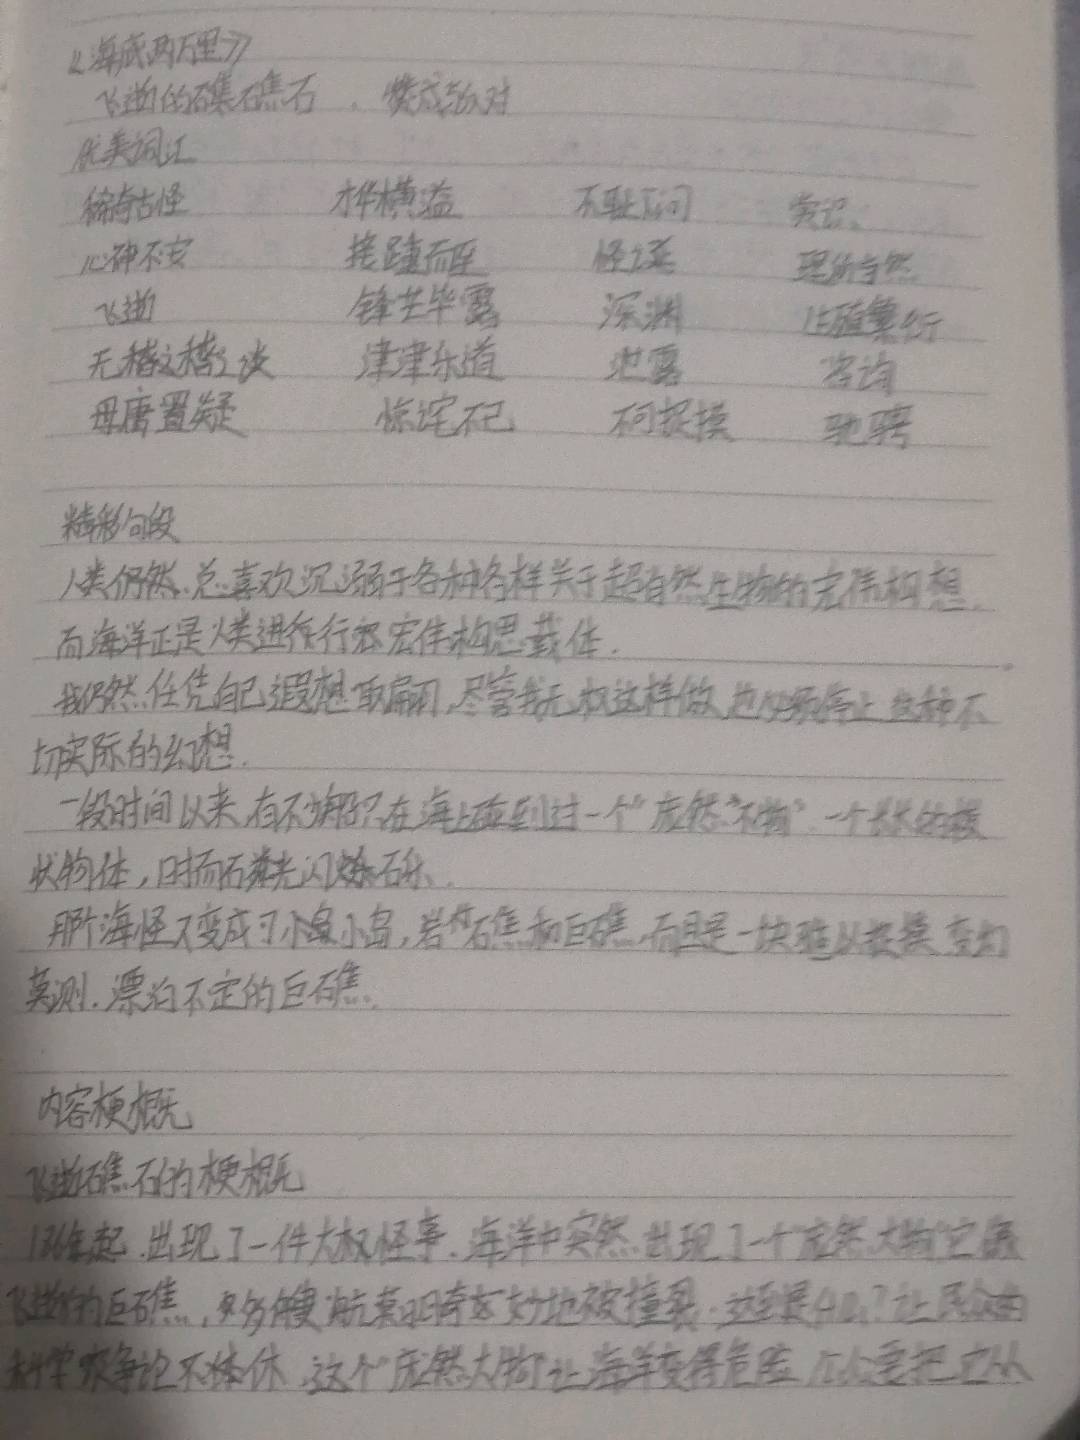 《海底两万里》
飞逝的礁石 . 赞成反对
优美词汇
稀奇古怪 才华横溢 不耻下问
心神不安 接踵而至 怪诞 理所当然
飞逝 锋芒毕露 深渊 生殖繁衍
无稽之谈 津津乐道 泄露 咨询
毋庸置疑 惊诧不已 不可捉摸 驰骋
精彩句段
人类仍然总喜欢沉溺于各种各样关于超自然生物的宏伟构想,
而海洋正是人类进行宏伟构思载体.
我仍然任凭自己遐想联翩,尽管我无权这样做,也必须停止这种不
切实际的幻想.
一段时间以来,有不少船只在海上碰到过一个"庞然大物",一个长长的梭
状物体,时而磷光闪烁.
那海怪又变成了小岛,岩礁和巨礁,而且是一块难以捉摸,变幻
莫测.漂泊不定的巨礁.
内容梗概
飞逝礁石的梗概
年起.出现了一件大怪事.海洋中突然出现了一个"庞然大物"它
飞逝的巨礁,多艘航莫名奇妙地被撞裂.这到是什么?让民众由
科学家争论不休.这个"庞然大物"让海洋变得危险 要把它从